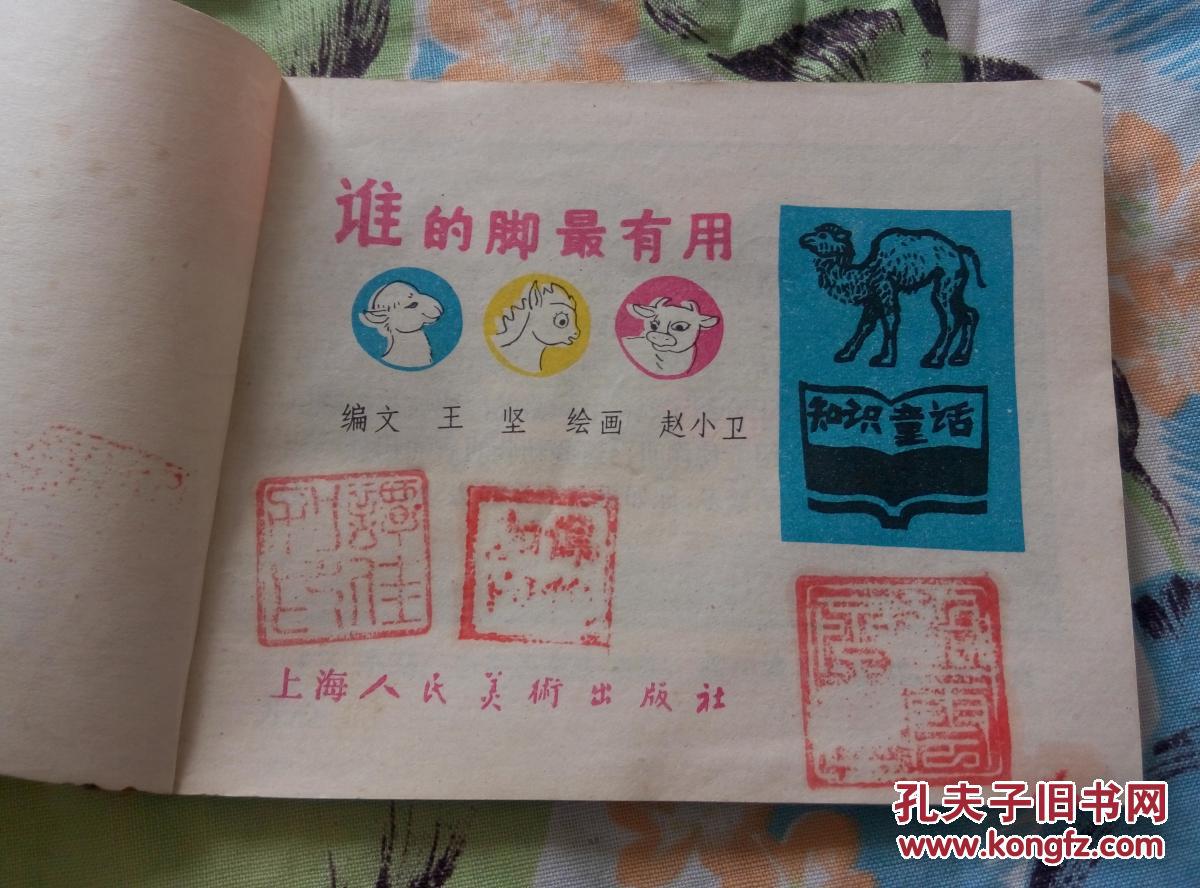 谁的脚最有用
知识童话
编文 王 坚 绘画 赵小卫
譚佳
上海人民美術出版社
孔夫子旧书网
www.kongfz.com